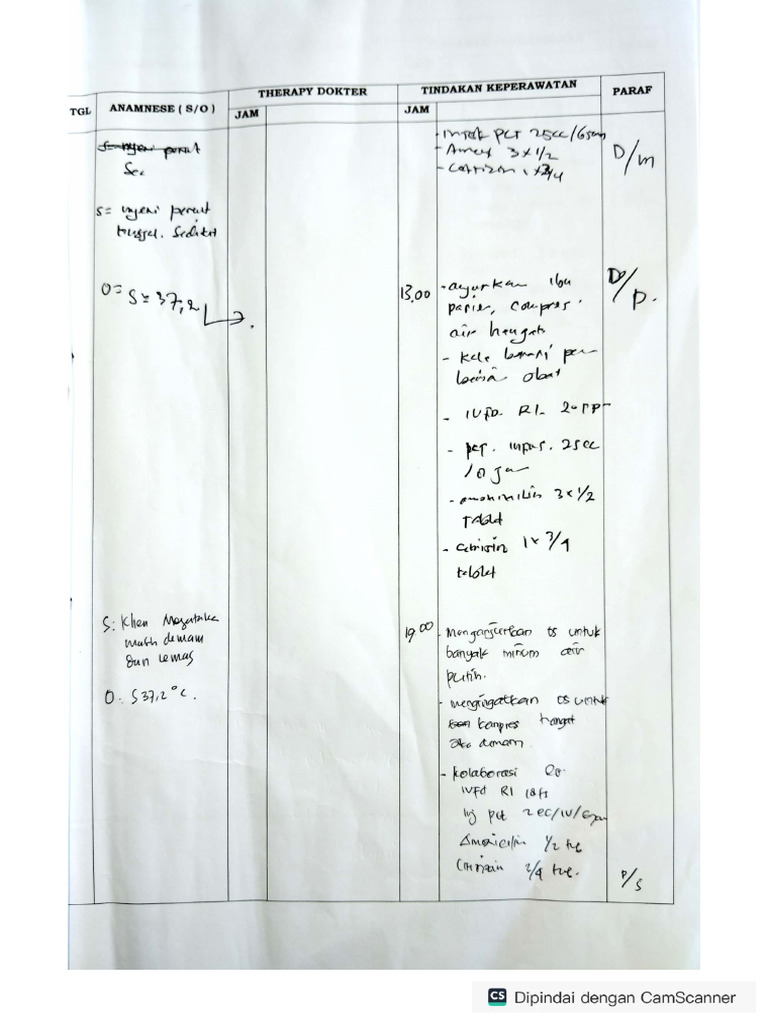 TGL
ANAMNESE ( S/O )
THERAPY DOKTER
JAM
TINDAKAN KEPERAWATAN
JAM
PARAF
perut
- PCT 25cc/6jam
- Amox 3 x 1/2
D/m
S = nyeri perut
tinggal. Sedikit
O = S = 37,2
13.00
- anjurkan ibu
compres
air hangat
obat
- IVFD RL 20 tpm
- pct. infus. 25cc
- amoxicilin 3 x 1/2
Tablet
- Cetirizin 1 x 3/4
tablet
D/P.
S: Klien Mengatakan
masih demam
dan lemas
O: S 37,2°C.
19.00
- Menganjurkan os untuk
banyak minum air
putih.
- mengingatkan os untuk
kompres hangat
jika demam
- kolaborasi
IVFD Rl 18 ts
Inj pct 2 /IV/6 jam
Amoxicilin 1/2 tab
3/4 tab.
P/S
CS Dipindai dengan CamScanner